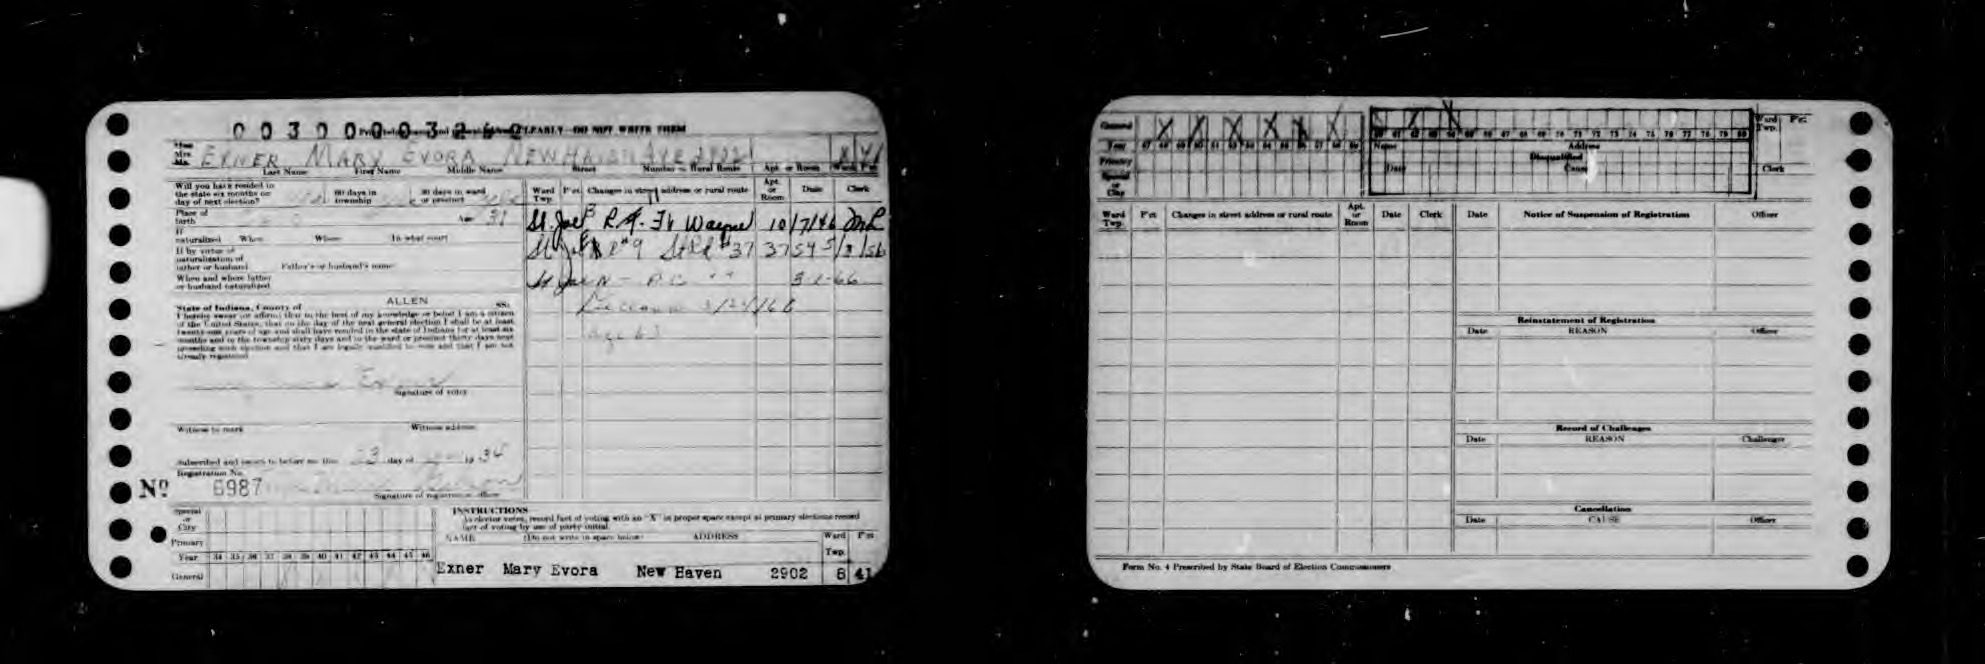 0030000325
CLEARLY—DO NOT WRITE THEM
Miss
Mrs.
EXNER MARY EVORA NEW HAVEN AVE 2902 8 41
Last Name First Name Middle Name Street Number or Rural Route Apt. or Room Ward Pct
Will you have resided in
the state six months on
day of next election?
60 days in
township
30 days in ward
or precinct
Place of
birth
Age 31
If
naturalized When Where In what court
If by virtue of
naturalization of
father or husband Father's or husband's name
When and where father
or husband naturalized
State of Indiana, County of ALLEN ss:
I hereby swear (or affirm) that to the best of my knowledge or belief I am a citizen
of the United States, that on the day of the next general election I shall be at least
twenty-one years of age and shall have resided in the state of Indiana for at least six
months and in the township sixty days and in the ward or precinct thirty days next
preceding such election and that I am legally qualified to vote and that I am not
already registered
Exner
Signature of voter
Witness to mark Witness address
Subscribed and sworn to before me this 23 day of 19 34
Registration No.
No 6987
Signature of registration officer
Ward
Twp.
Pct Changes in street address or rural route Apt.
or
Room
Date Clerk
St. Joe 3 Ft Wayne 10/7/46
St Joe #9 St Rd #37 3754 5/3/56
St Joe N 3-1-66
3/24/66
age 63
Special
or
City
Primary
Year 34 35 36 37 38 39 40 41 42 43 44 45 46
General
INSTRUCTIONS
As elector votes, record fact of voting with an "X" in proper space except at primary elections record
fact of voting by use of party initial.
NAME (Do not write in space below) ADDRESS Ward
Twp.
Pct
Exner Mary Evora New Haven 2902 8 41
General
Year 47 48 49 50 51 52 53 54 55 56 57 58 59
Primary
Special
or
City
60 61 62 63 64 65 66 67 68 69 70 71 72 73 74 75 76 77 78 79 80
Name Address
Disqualified
Date Cause
Ward
Twp.
Pct
Clerk
Ward
Twp.
Pct Changes in street address or rural route Apt.
or
Room
Date Clerk
Date Notice of Suspension of Registration Officer
Reinstatement of Registration
Date REASON Officer
Record of Challenges
Date REASON Challenger
Cancellation
Date CAUSE Officer
Form No. 4 Prescribed by State Board of Election Commissioners